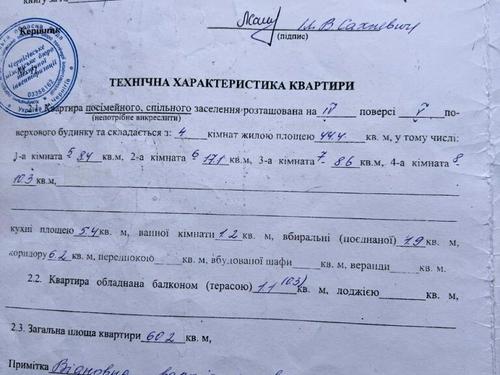 Керівник
М.В.Сахневич
(підпис)
ТЕХНІЧНА ХАРАКТЕРИСТИКА КВАРТИРИ
2.1. Квартира посімейного, спільного заселення розташована на IV поверсі V по-
(непотрібне викреслити)
верхового будинку та складається з: 4 кімнат жилою площею 44.4 кв. м, у тому числі:
1-а кімната 5 8.4 кв.м, 2-а кімната 6 17.1 кв.м, 3-а кімната 7- 8.6 кв.м, 4-а кімната 8
10.3 кв.м,
кухні площею 5.4 кв. м, ванної кімнати 1.2 кв. м, вбиральні (поєднаної) 1.9 кв. м,
коридору 6.2 кв. м, передпокою кв. м, вбудованої шафи кв. м, веранди кв. м.
2.2. Квартира обладнана балконом (терасою) 1.1 (0.3) кв. м, лоджією кв. м,
2.3. Загальна площа квартири 60.2 кв. м,
Примітка